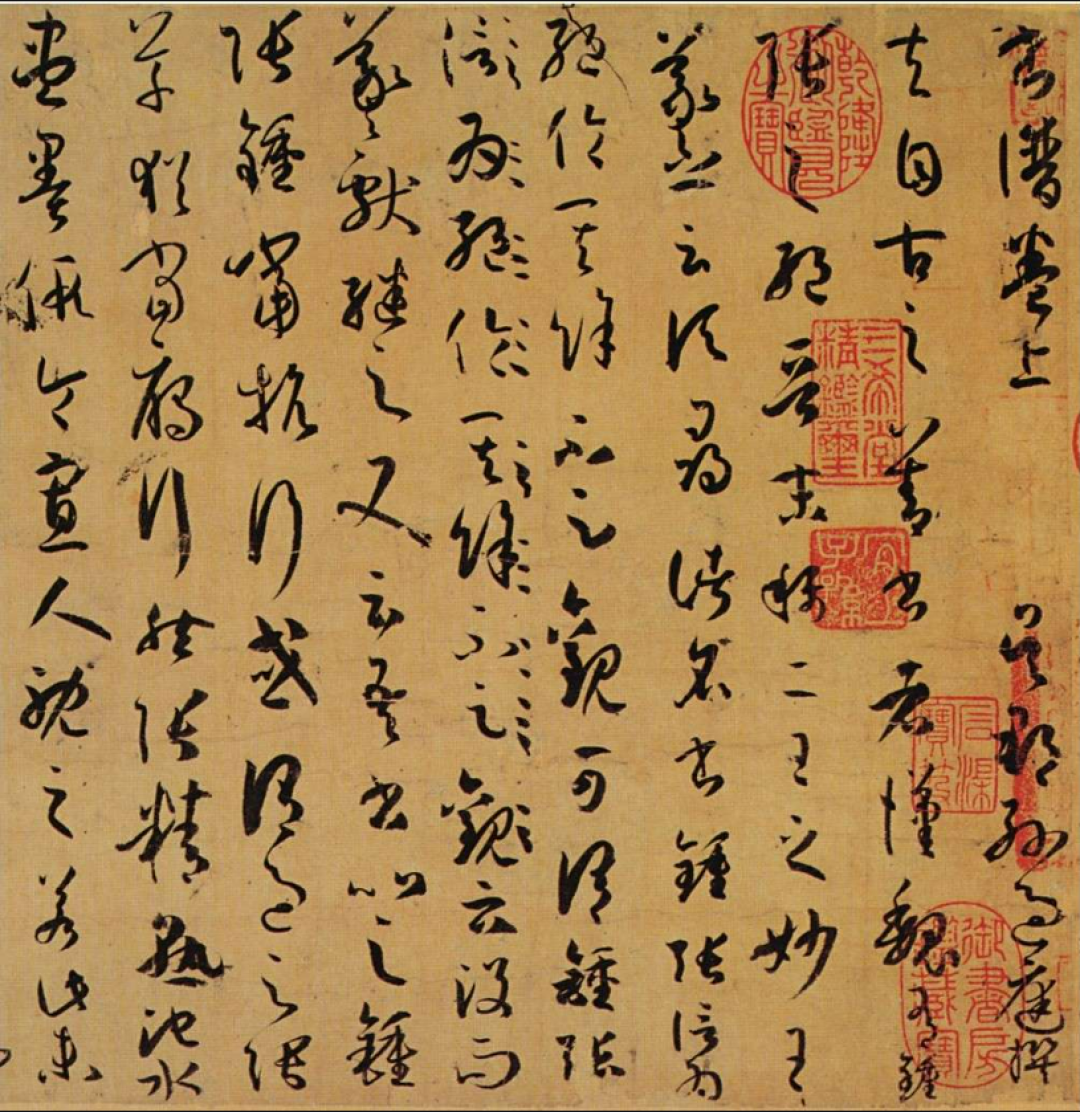 書譜卷上 吳郡孫過庭撰
夫自古之善書者漢魏有鍾
張之絕晉末稱二王之妙王
羲之云頃尋諸名書鍾張信為
絕倫其餘不足觀可謂鍾張
信為絕倫其餘不足觀云沒而
羲獻繼之又云吾書比之鍾
張鍾當抗行或謂過之張
草猶當雁行然張精熟池水
盡墨假令寡人耽之若此未
乾隆御覽之寶
三希堂精鑑璽
宜子孫
石渠寶笈
御書房鑑藏寶